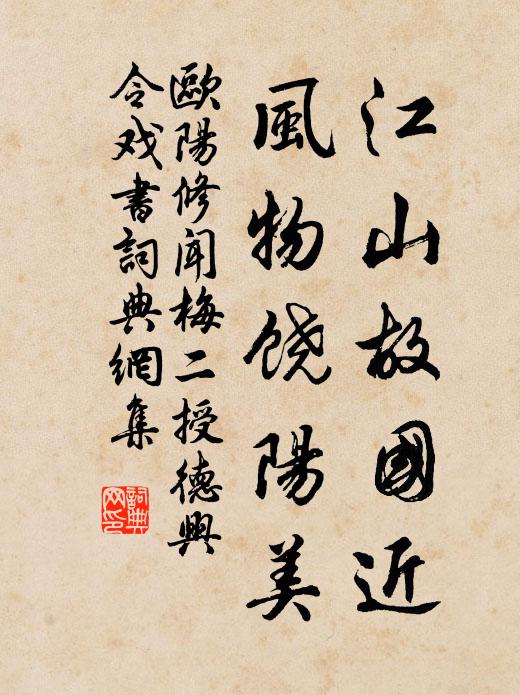 江山故國近
風物饶陽美
歐陽修聞梅二授德興
令戏書詞典網集
詞典
网印